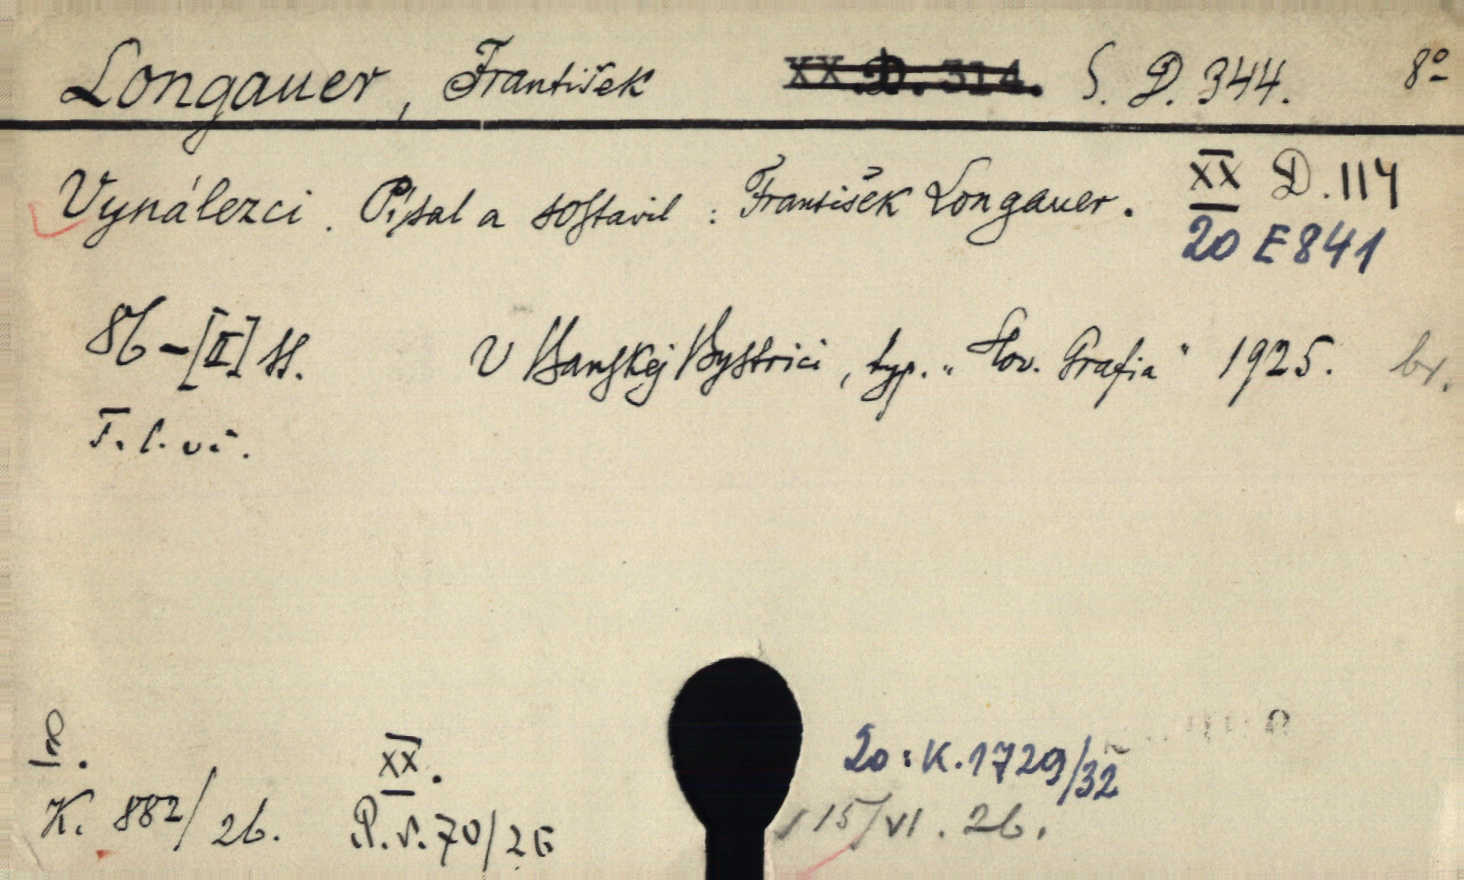 Longauer, František XX.D.314. S. D. 344. 8º
Vynálezci. Písal a sostavil: František Longauer. XX D.114
20 E 841
86-[II] ss. V Banskej Bystrici, typ. "Slov. Grafia" 1925. br.
T. l. vč.
K. 882/26. XX.
P.v.70/26
20: K.1729/32
15/VI.26.